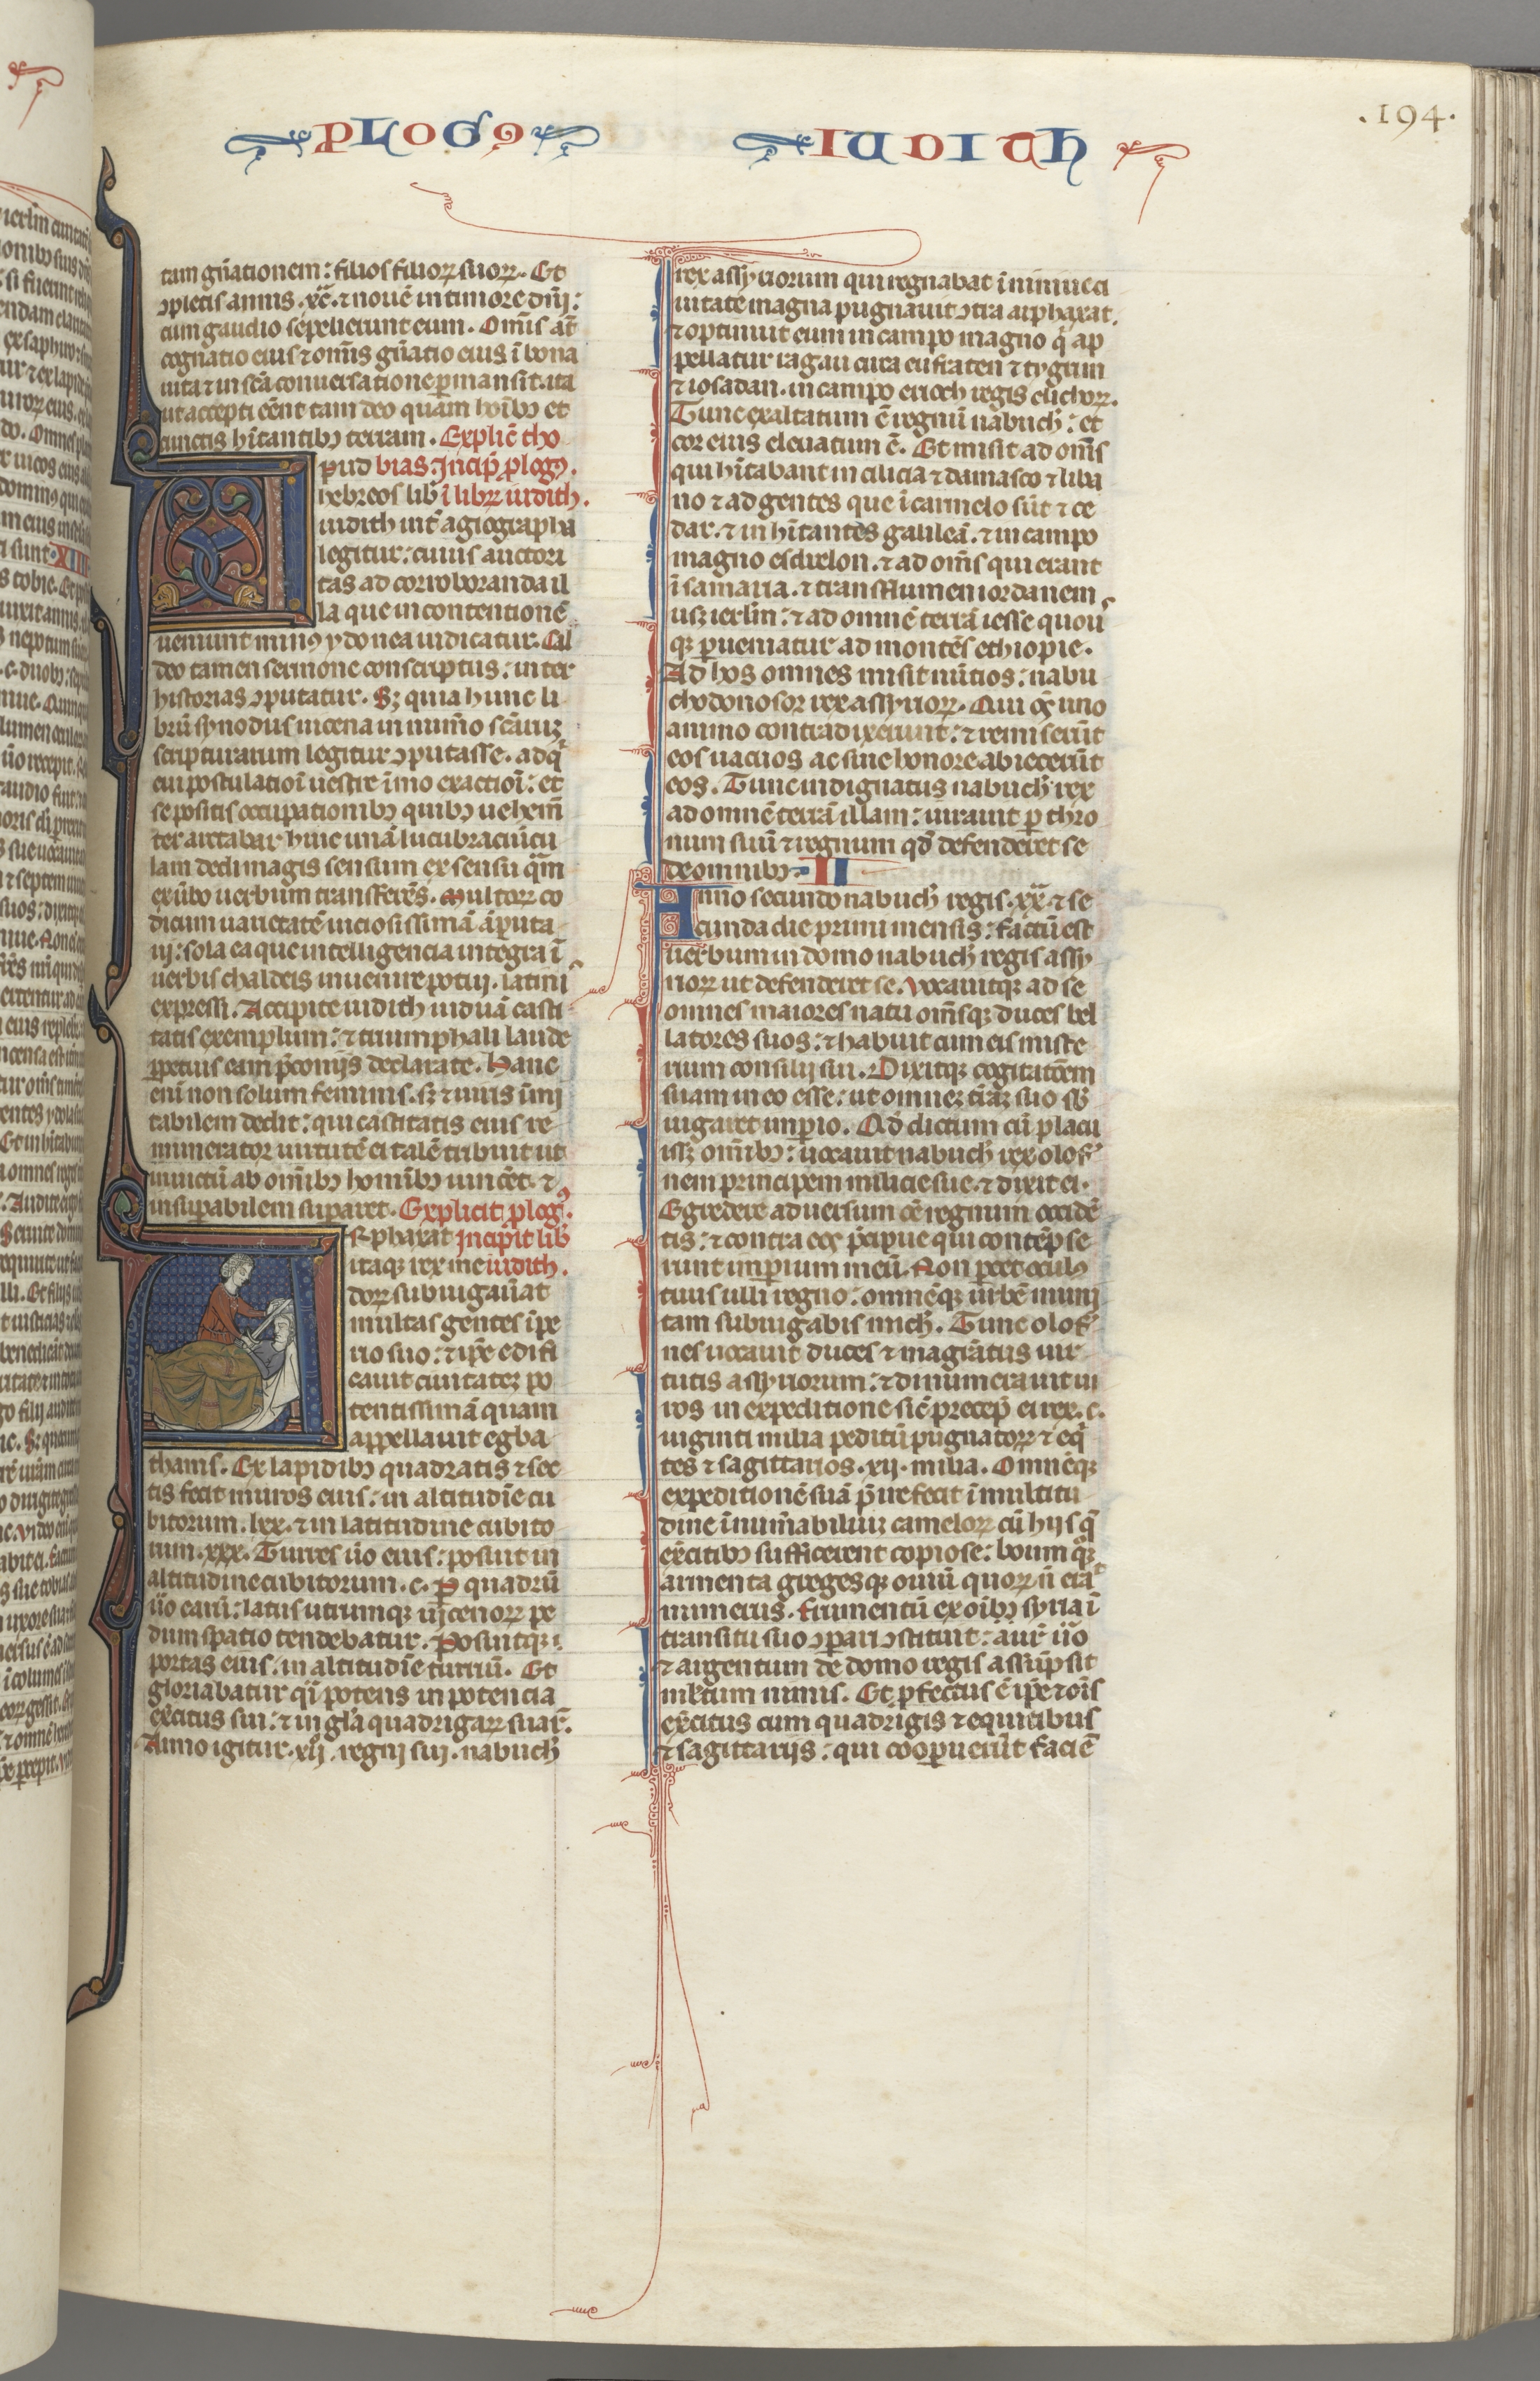 PLOGꝰ IUDITH
.194.
tam gn̄ationem: filios filioꝝ suoꝝ. Et
ꝯpletis annis .xc̄. ⁊ nouē in timore dn̄i:
cum gaudio sepelierunt eum. Omīs at̄
cognatio eius ⁊ om̄is gn̄atio eius ī bona
uita ⁊ in sc̄a conuersatione ꝑmansit. ita
ut accepti eēnt tam deo quam hoībꝫ et
cunctis hītantibꝫ terram. Explic̄ tho
pud bias. Incip̄ plogꝰ.
hebreos lib̄ ī libꝝ iudith.
iudith int̄ agiographa
legitur: cuius auctori
tas ad corroboranda il
la que in contentionē
ueniunt minꝰ ydonea iudicatur. Cal
deo tamen sermone conscriptus: inter
historias ꝯputatur. Sꝫ quia hunc li
brū synodus nicena in num̄o sc̄aꝝ
scripturarum legitur ꝯputasse. adq̄
eui postulatioī uestre īmo exactioī: et
sepositis occupationibꝫ quibꝫ uehem̄
ter artabar huic unā lucubraciūcu
lam dedi magis sensum ex sensu qͣm
ex ūbo uerbum transferēs. Multoꝝ co
dicum uarietatē uiciosissimā āputa
ui: sola ea que intelligencia integra ī
uerbis chaldeis inuenire potui. latinis
expressi. Accipite iudith uiduā casti
tatis exemplum: ⁊ triumphali laude
ꝑpetuis eam p̄conijs declarate. Hanc
enī non solum feminis. sꝫ ⁊ uiris īmi
tabilem dedit: qui castitatis eius re
munerator uirtutē ei talē tribuit ut
inuictū ab om̄ibꝫ hominibꝫ uincēt. ⁊
insuꝑabilem suꝑaret. Explicit plogꝰ.
Arphaxat Incipit lib̄
itaqꝫ rex me iudith.
doꝝ subiugau̅at
multas gentes īpe
rio suo: ⁊ ip̄e edifi
cauit ciuitateꝫ po
tentissimā quam
appellauit egba
thanis. Ex lapidibꝫ quadratis ⁊ sec
tis fecit muros eius: in altitudīe cu
bitorum .lxx. ⁊ in latitudine cubito
rum .xxx. Turres ūo eius: posuit in
altitudine cubitorum .c. P quadrū
ūo earū: latus utrumqꝫ uicenoꝝ pe
dum spatio tendebatur. Posuitqꝫ
portas eius. in altitudīe turriū. Et
gloriabatur qͣi potens in potencia
exc̄itus sui: ⁊ in gl̄a quadrigaꝝ suaꝝ.
Anno igitur .xij. regni sui. nabuch̄
rex assyriorum qui regnabat ī niniue ci
uitate magna pugnauit ꝯtra arphaxat.
⁊ optinuit eum in campo magno q̇ ap
pellatur ragau circa eufraten ⁊ tygrim
⁊ iosadan. in campo erioch regis elichoꝝ.
Tunc exaltatum ē regnū nabuch̄: et
cor eius eleuatum ē. Et misit ad om̄s
qui hītabant in cilicia ⁊ damasco ⁊ liba
no ⁊ ad gentes que ī carmelo sūt ⁊ ce
dar. ⁊ in hītantes galileā. ⁊ in campo
magno esdrelon. ⁊ ad om̄s qui erant
ī samaria. ⁊ trans flumen iordanem
usqꝫ ierlm̄: ⁊ ad omnē terrā iesse quou
qꝫ ꝑueniatur ad montēs ethiopie.
Ad hos omnes misit nūtios: nabu
chodonosor rex assyrioꝝ. Qui oēs uno
animo contradixerunt: ⁊ remiserūt
eos uacuos ac sine honore abiecerūt
eos. Tunc indignatus nabuch̄ rex
ad omnē terrā illam: iurauit ꝑ thro
num suū ⁊ regnum qd̄ defenderet se
de omnibꝫ. II
Anno secundo nabuch̄ regis .xx̄. ⁊ se
cunda die primi mensis: factū est
uerbum in domo nabuch̄ regis assy
rioꝝ ut defenderet se. Vocauitqꝫ ad se
omnes maiores natu om̄sqꝫ duces bel
latores suos: ⁊ habuit cum eis miste
rium consilij sui. Dixitqꝫ cogitatōem
suam in eo esse: ut omneꝫ t̄raꝫ suo sb̄
iugaret imperio. Qd̄ dictum cū placu
issꝫ om̄ibꝫ: uocauit nabuch̄ rex olof̄
nem principem milicie sue. ⁊ dixit ei.
Egredere aduersum oē regnum occidē
tis: ⁊ contra eos p̄cipue qui contēpse
runt imꝑium meū. Non parcet oculꝰ
tuus ulli regno: omnēqꝫ urbē muni
tam subiugabis mich̄. Tunc olof̄
nes uocauit duces ⁊ magr̄atus uir
tutis assyriorum: ⁊ dinumerauit ui
ros in expeditione sic̄ precep̄ ei rex. c.
uiginti milia peditū pugnatoꝝ ⁊ eq̄
tes ⁊ sagittarios .xij. milia. Omnēqꝫ
expeditionē suā p̄ire fecit ī multitu
dine īnum̄abiliuꝫ cameloꝝ cū hijs q̄
exc̄itibꝫ sufficerent copiose: boum qͦꝫ
armenta gregesqꝫ ouiū quoꝝ n̄ erat
numerus. Frumentū ex oībꝫ syria ī
transitu suo ꝯpari ꝯstituit: aur̄ ūo
⁊ argentum de domo regis assūpsit
ml̄tum nimis. Et ꝓfectus ē ip̄e ⁊ oīs
exc̄itus cum quadrigis ⁊ equitibus
⁊ sagittarijs: qui cooꝑuerūt faciē